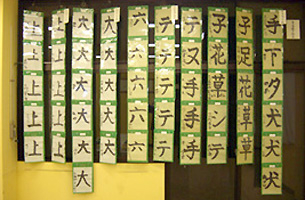 手下夕犬犬犬
子足花草草
子花草シテ
テヌ手手手
テテテテテ
六六六六六
大大大大大
大大大大大大
上上上上上
上上上上上